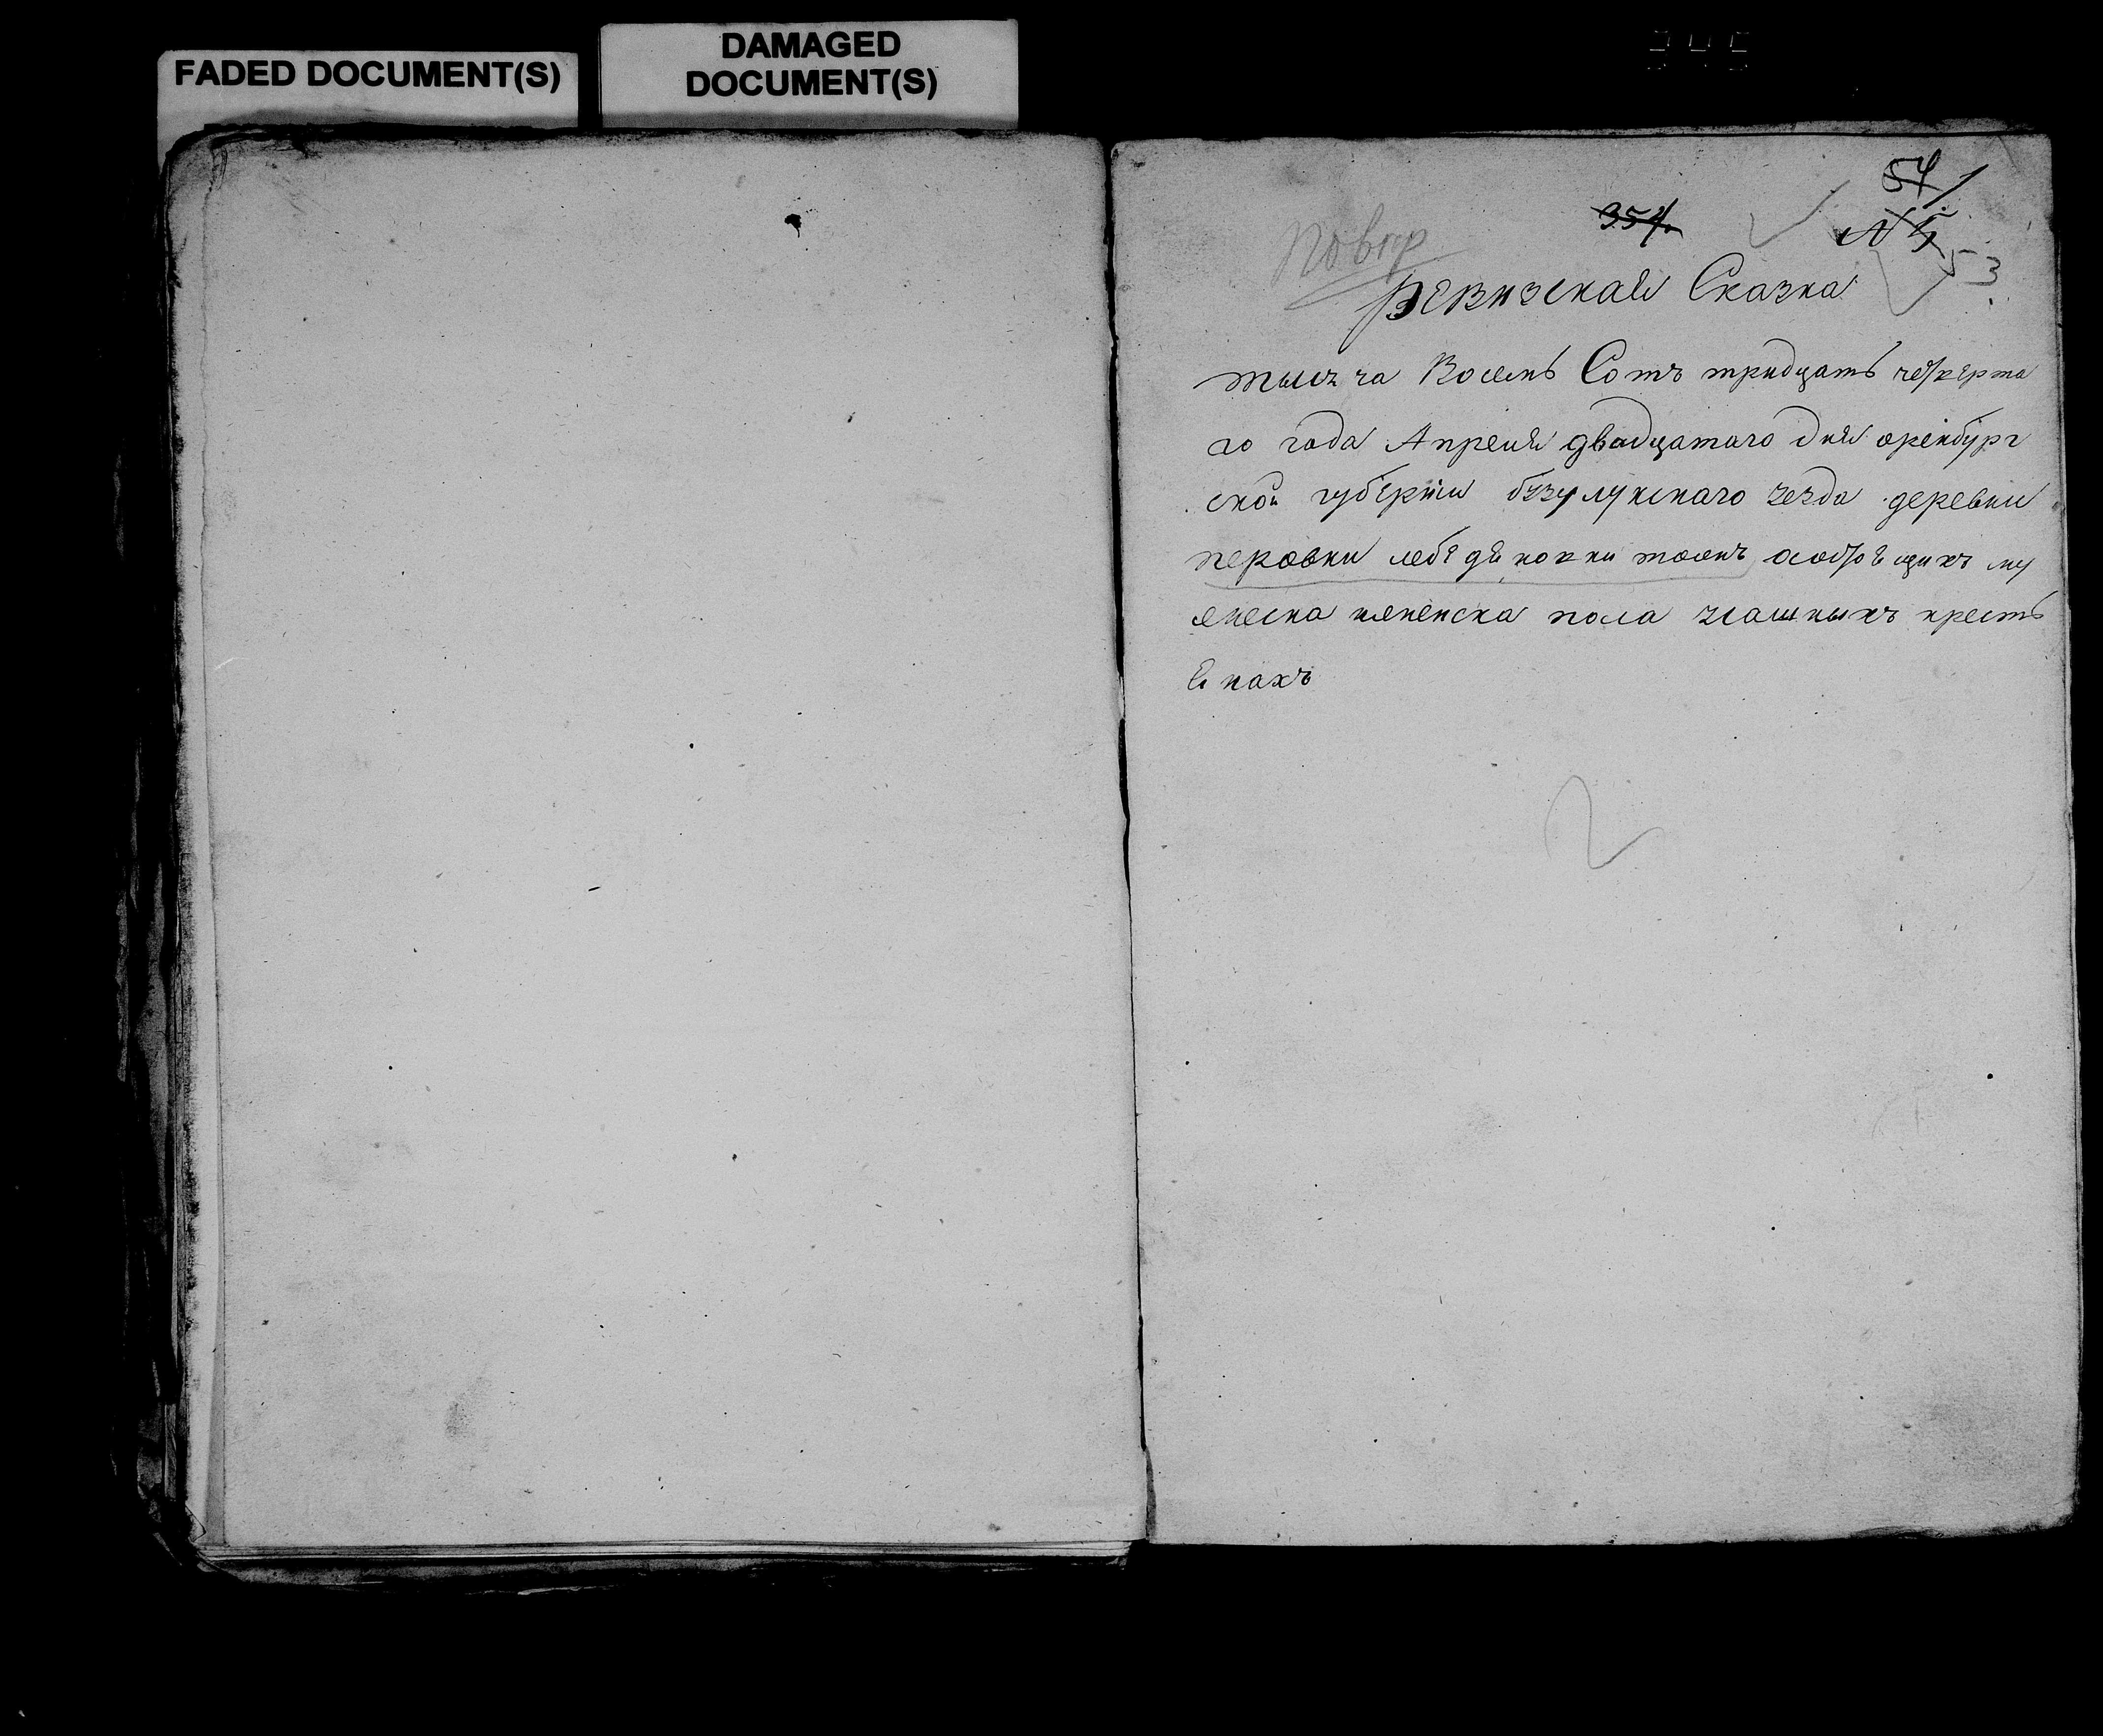 FADED DOCUMENT(S)
DAMAGED
DOCUMENT(S)
54
354.
№ 5
53
Ревизская Сказка
тысеча Восемь Сотъ тридцать четверта
го года Апреля двадцатаго дня оренбург
ской губернии бузулукскаго уезда деревни
перовки лебедıновки тожъ осостоящихъ му
жеска иженска пола крестъ
янахъ